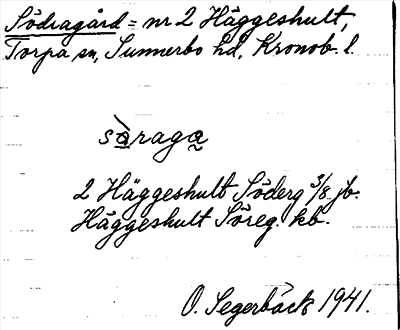 Södragård = nr 2 Häggeshult,
Torpa sn, Sunnerbo hd, Kronob. l.
sàraga
2 Häggeshult Söderg 3/8. jb.
Häggeshult Söreg. kb.
O. Segerbäck 1941.